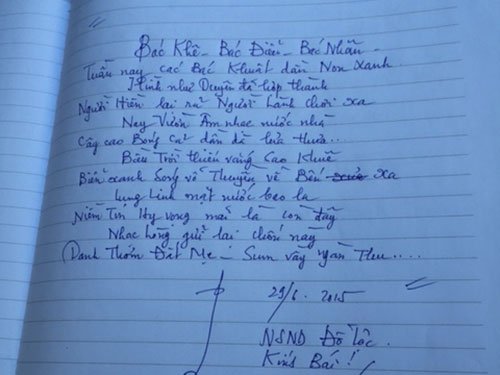 Bác Khê - Bác Điền - Bác Nhẫn -
Tuần này các Bác Khuất dần Non Xanh
Hình như Duyên đã lập thành
Người Hiền lại rủ Người Lành chơi xa
Nay Vườn Âm nhạc nước nhà
Cây cao Bóng Cả dần dà lưa thưa...
Bầu Trời thiên vàng Sao Khuê
Biển xanh Sóng vỗ Thuyền về Bến xa
Lung Linh mặt nước bao la
Niềm Tin Hy vọng mãi là con đây
Nhạc lòng gửi lại chốn này
Danh Thơm Đất Mẹ - Sum vầy ngàn Thu....
29/6.2015
NSND Đỗ Lộc
Kính Bái!